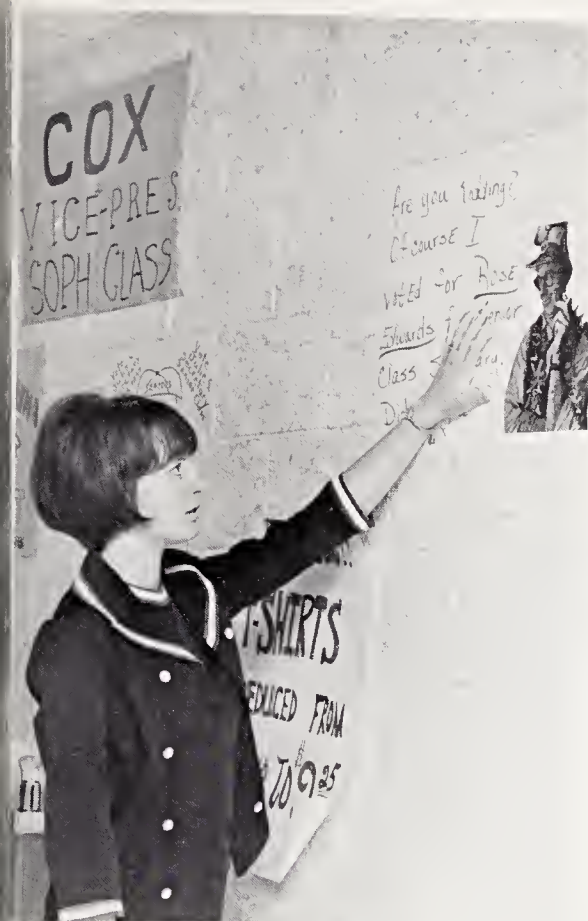 COX
VICE-PRES
SOPH CLASS
Are you kidding?
Of course I
voted for Rose
Edwards
Class
T-SHIRTS
REDUCED FROM
TO